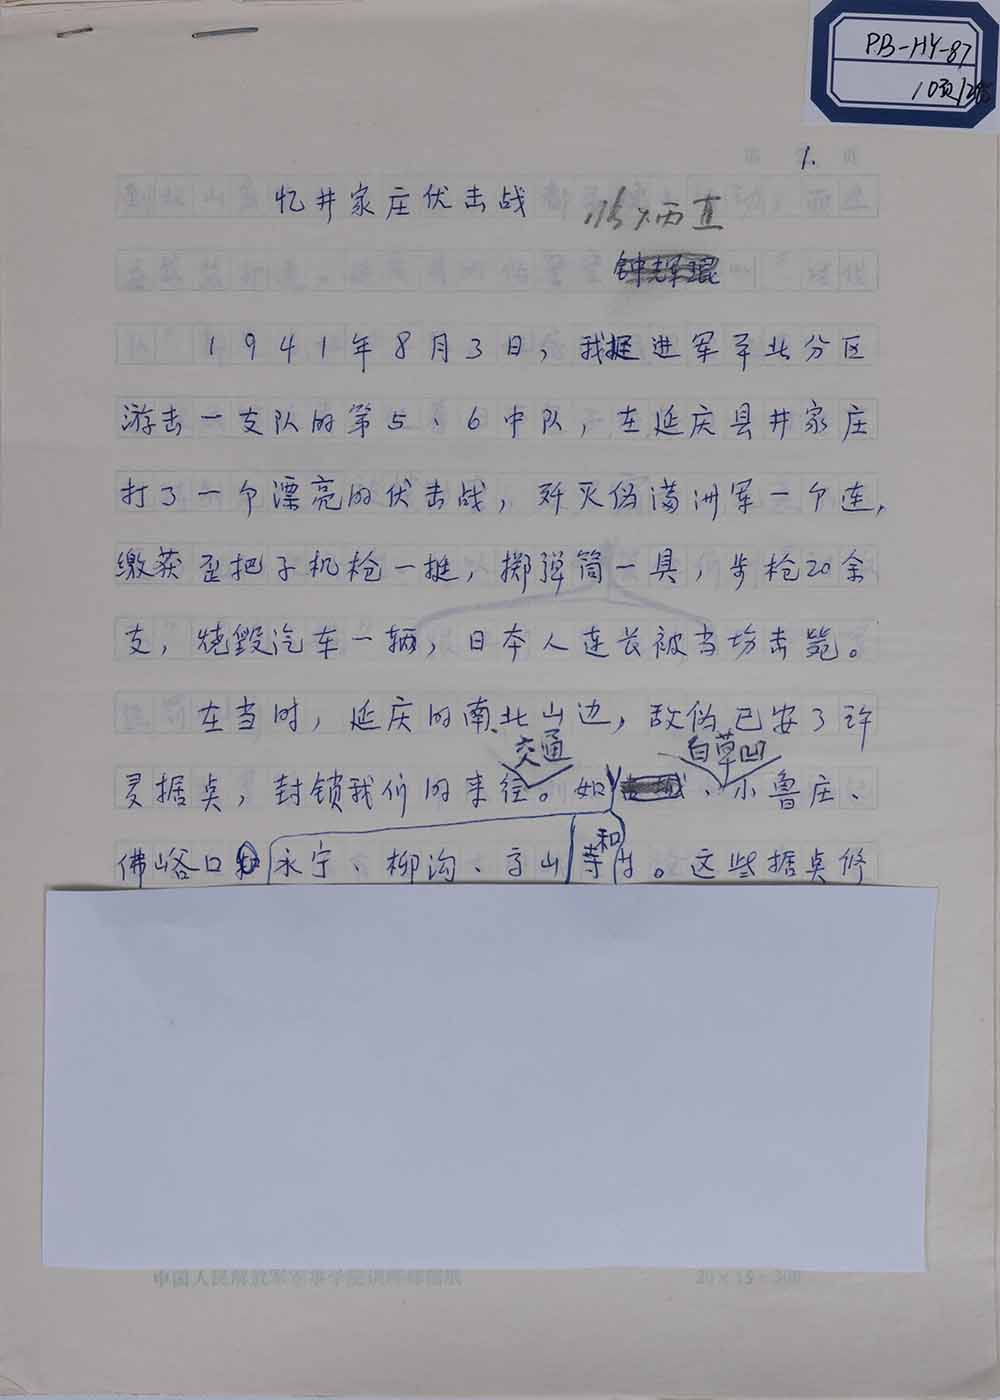 PB-HY-87
10页/285
第 1. 页
忆井家庄伏击战
钟辉琨
1941年8月3日，我挺进军平北分区
游击一支队的第5、6中队，在延庆县井家庄
打了一个漂亮的伏击战，歼灭伪满洲军一个连，
缴获歪把子机枪一挺，掷弹筒一具，步枪20余
支，烧毁汽车一辆，日本人连长被当场击毙。
在当时，延庆的南、北山边，敌伪已安了许
交通 白草凹
多据点，封锁我们的来往。如、小鲁庄、
和
佛峪口永宁、柳沟、寺。这些据点修
中国人民解放军军事学院训练部稿纸
20×15=300